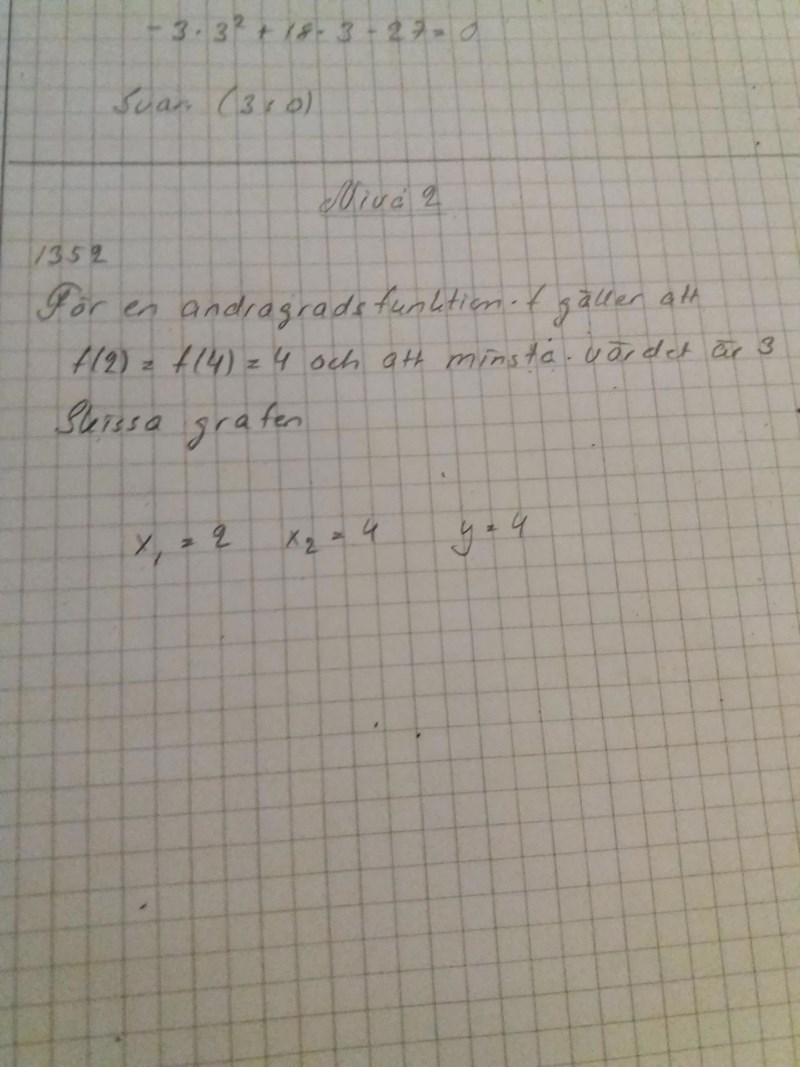 -3·3² + 18·3 - 27 = 0
Svar. (3,0)
Nivå 2
1352
För en andragradsfunktion f gäller att
f(2) = f(4) = 4 och att minsta värdet är 3
Skissa grafen
x₁ = 2 x₂ = 4 y = 4